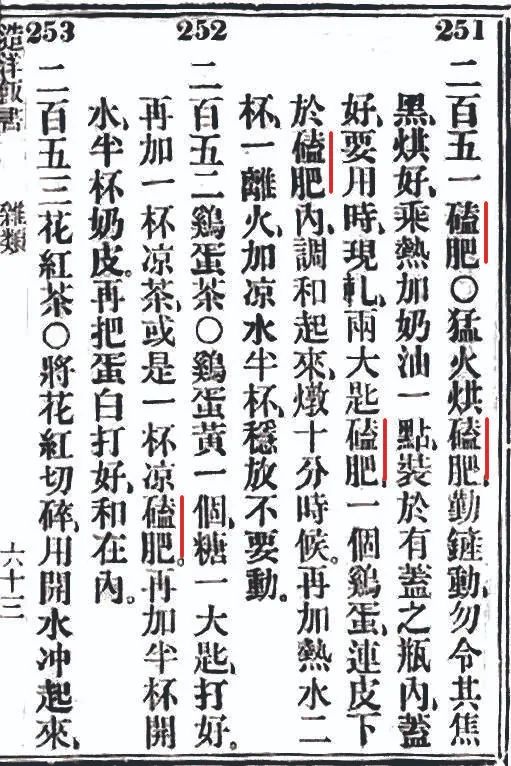 251
二百五一磕肥〇猛火烘磕肥勤鏟動、勿令其焦
黑、烘好、乘熱加奶油一點、裝於有蓋之瓶內、蓋
好、要用時、現軋、兩大匙磕肥一個鷄蛋、連皮下
於磕肥內、調和起來、燉十分時候。再加熱水二
杯、一離火、加凉水半杯、穩放不要動。
252
二百五二鷄蛋茶〇鷄蛋黃一個、糖一大匙、打好。
再加一杯凉茶、或是一杯凉磕肥。再加半杯開
水、半杯奶皮。再把蛋白打好、和在內。
253
二百五三花紅茶〇將花紅切碎、用開水冲起來、
造洋飯書
雜類
六十三